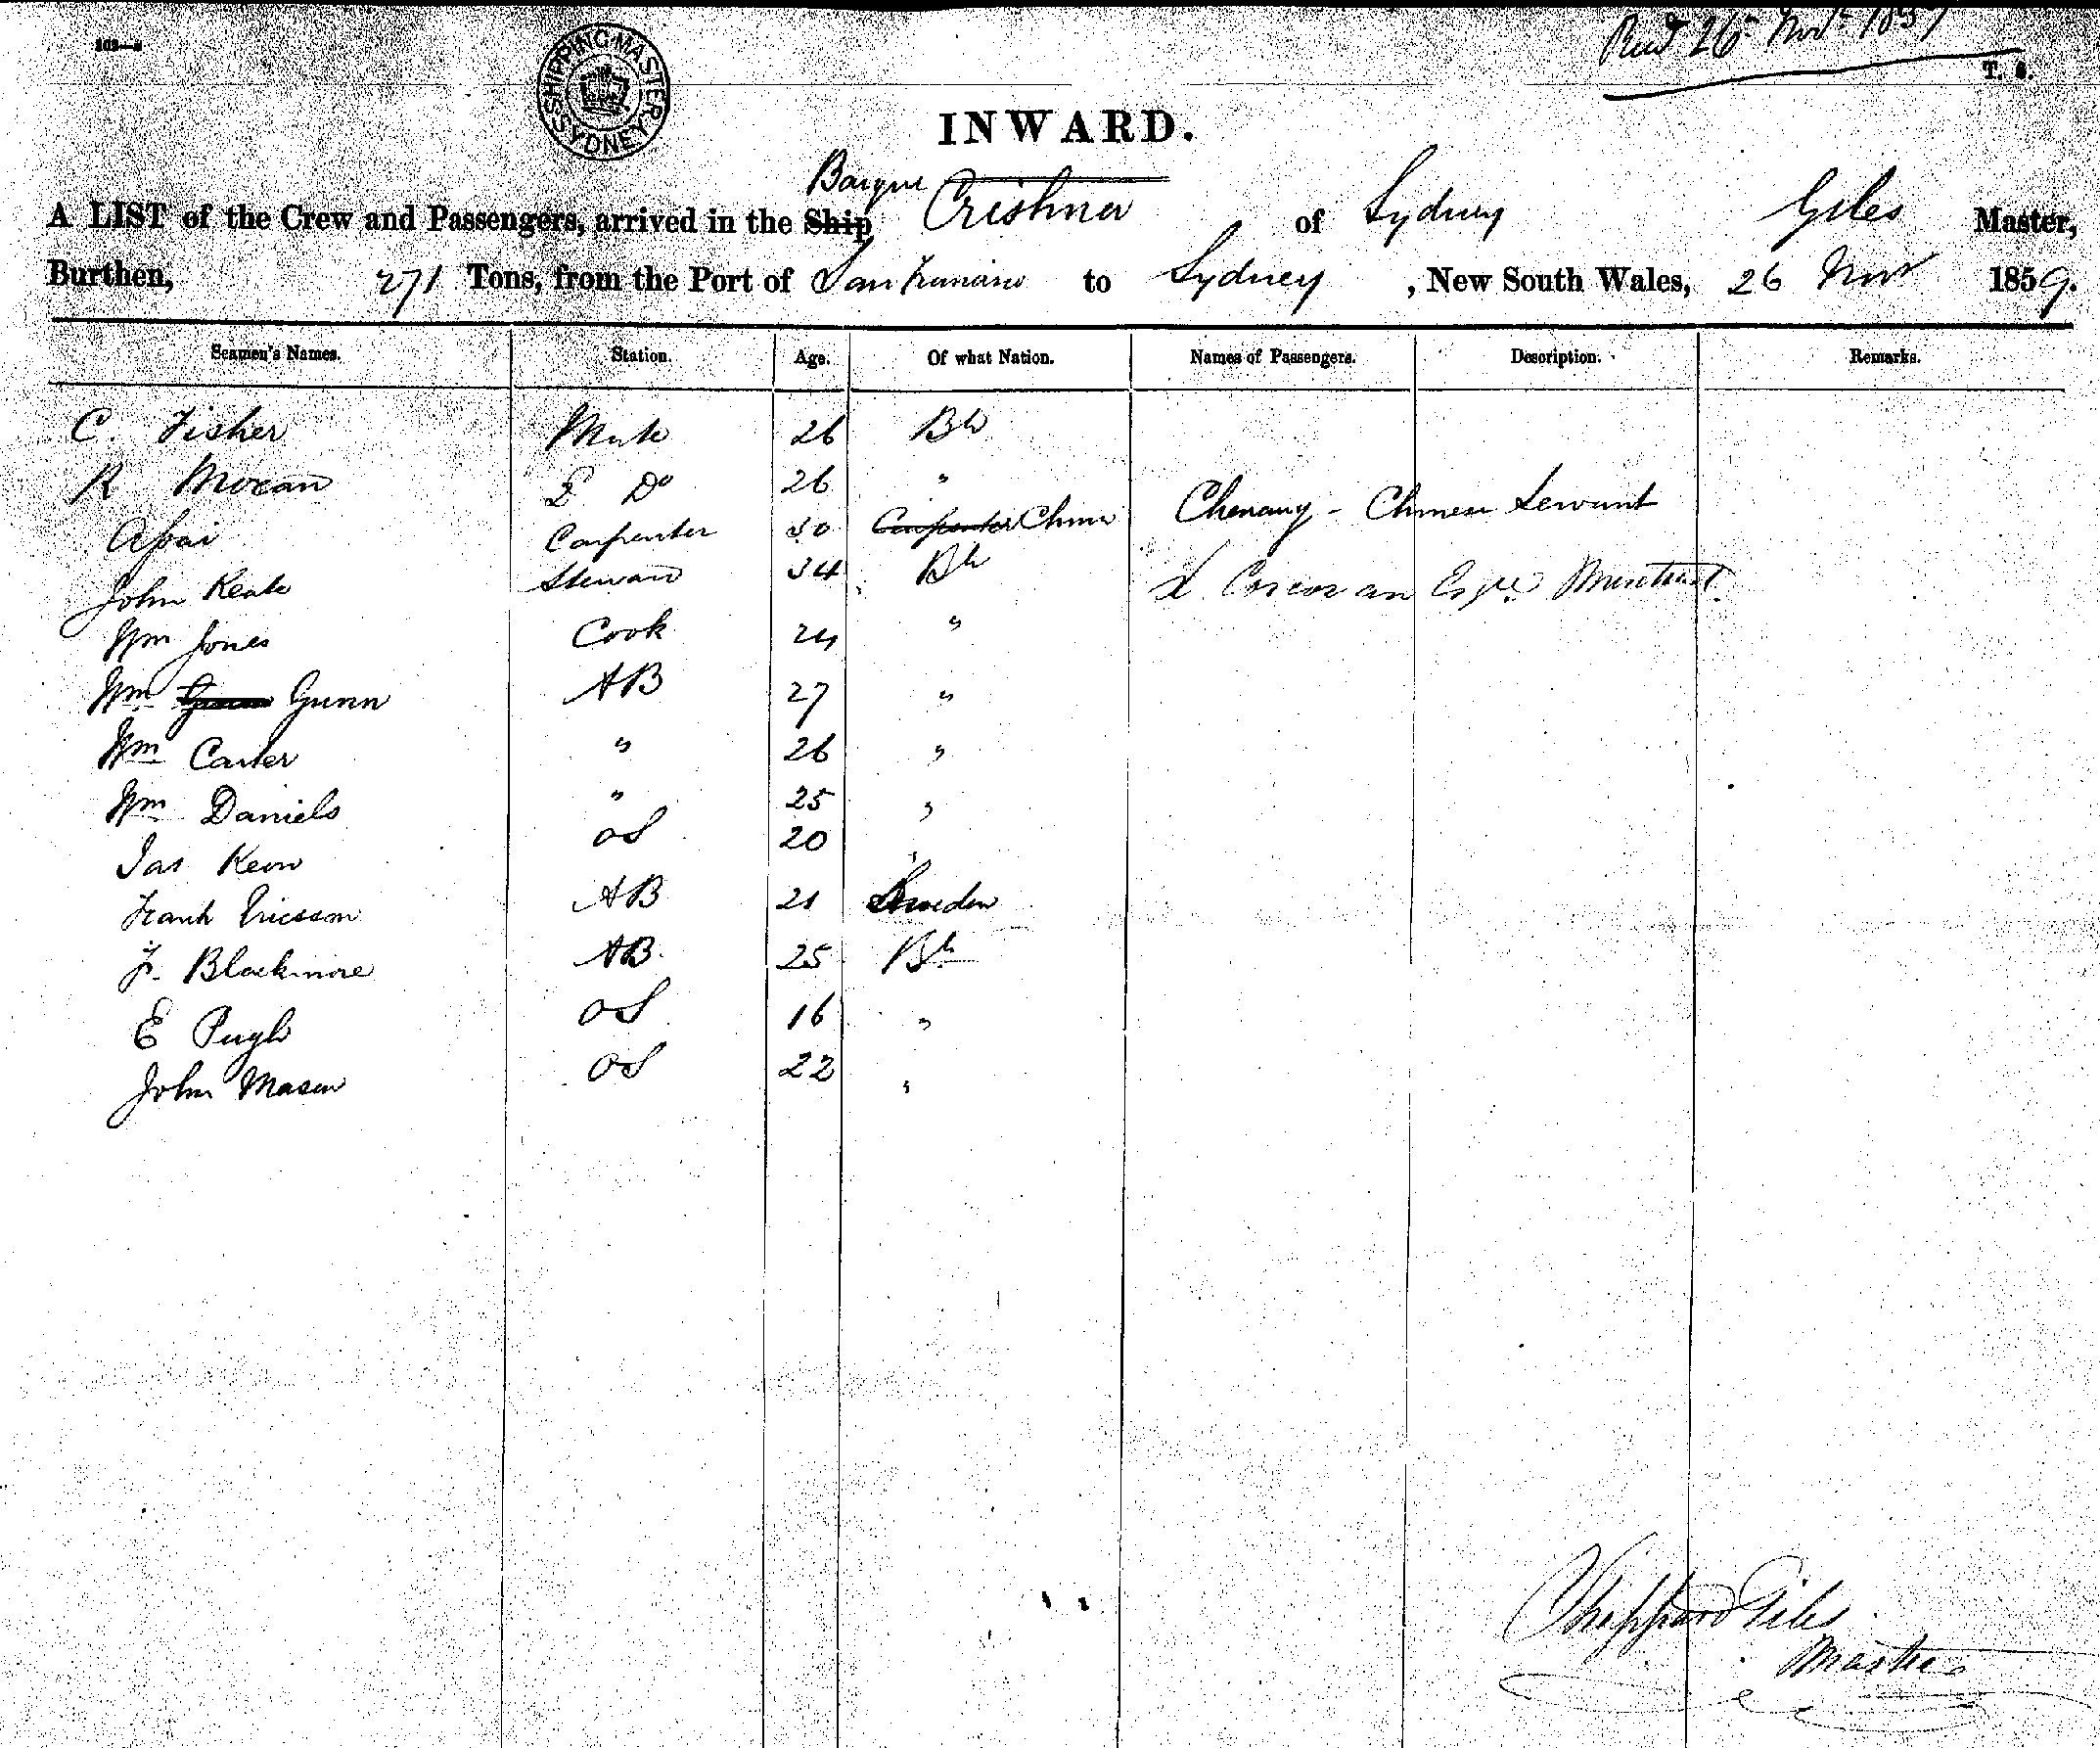 SHIPPING MASTER SYDNEY
Recd 26th Novr 1859
T. S.
INWARD.
Barque
A LIST of the Crew and Passengers, arrived in the Ship Crishna of Sydney Giles Master,
Burthen, 271 Tons, from the Port of San Francisco to Sydney, New South Wales, 26 Novr 1859.
Seamen's Names. Station. Age. Of what Nation. Names of Passengers. Description. Remarks.
C. Fisher Mate 26 Bh
R Moran 2 Do 26 "
Apai Carpenter 30 Carpenter China Chenang - Chinese Servant
John Keate Steward 34 Bh Corcoran Esqre
Wm Jones Cook 24 "
Wm Gunn AB 27 "
Wm Carter " 26 "
Wm Daniels " 25 "
Jas Keon OS 20 "
Frank Ericsson AB 21 Sweden
F. Blackmore AB 25 Bh
E Pugh OS 16 "
John Mason OS 22 "
Sheppard Giles
Master